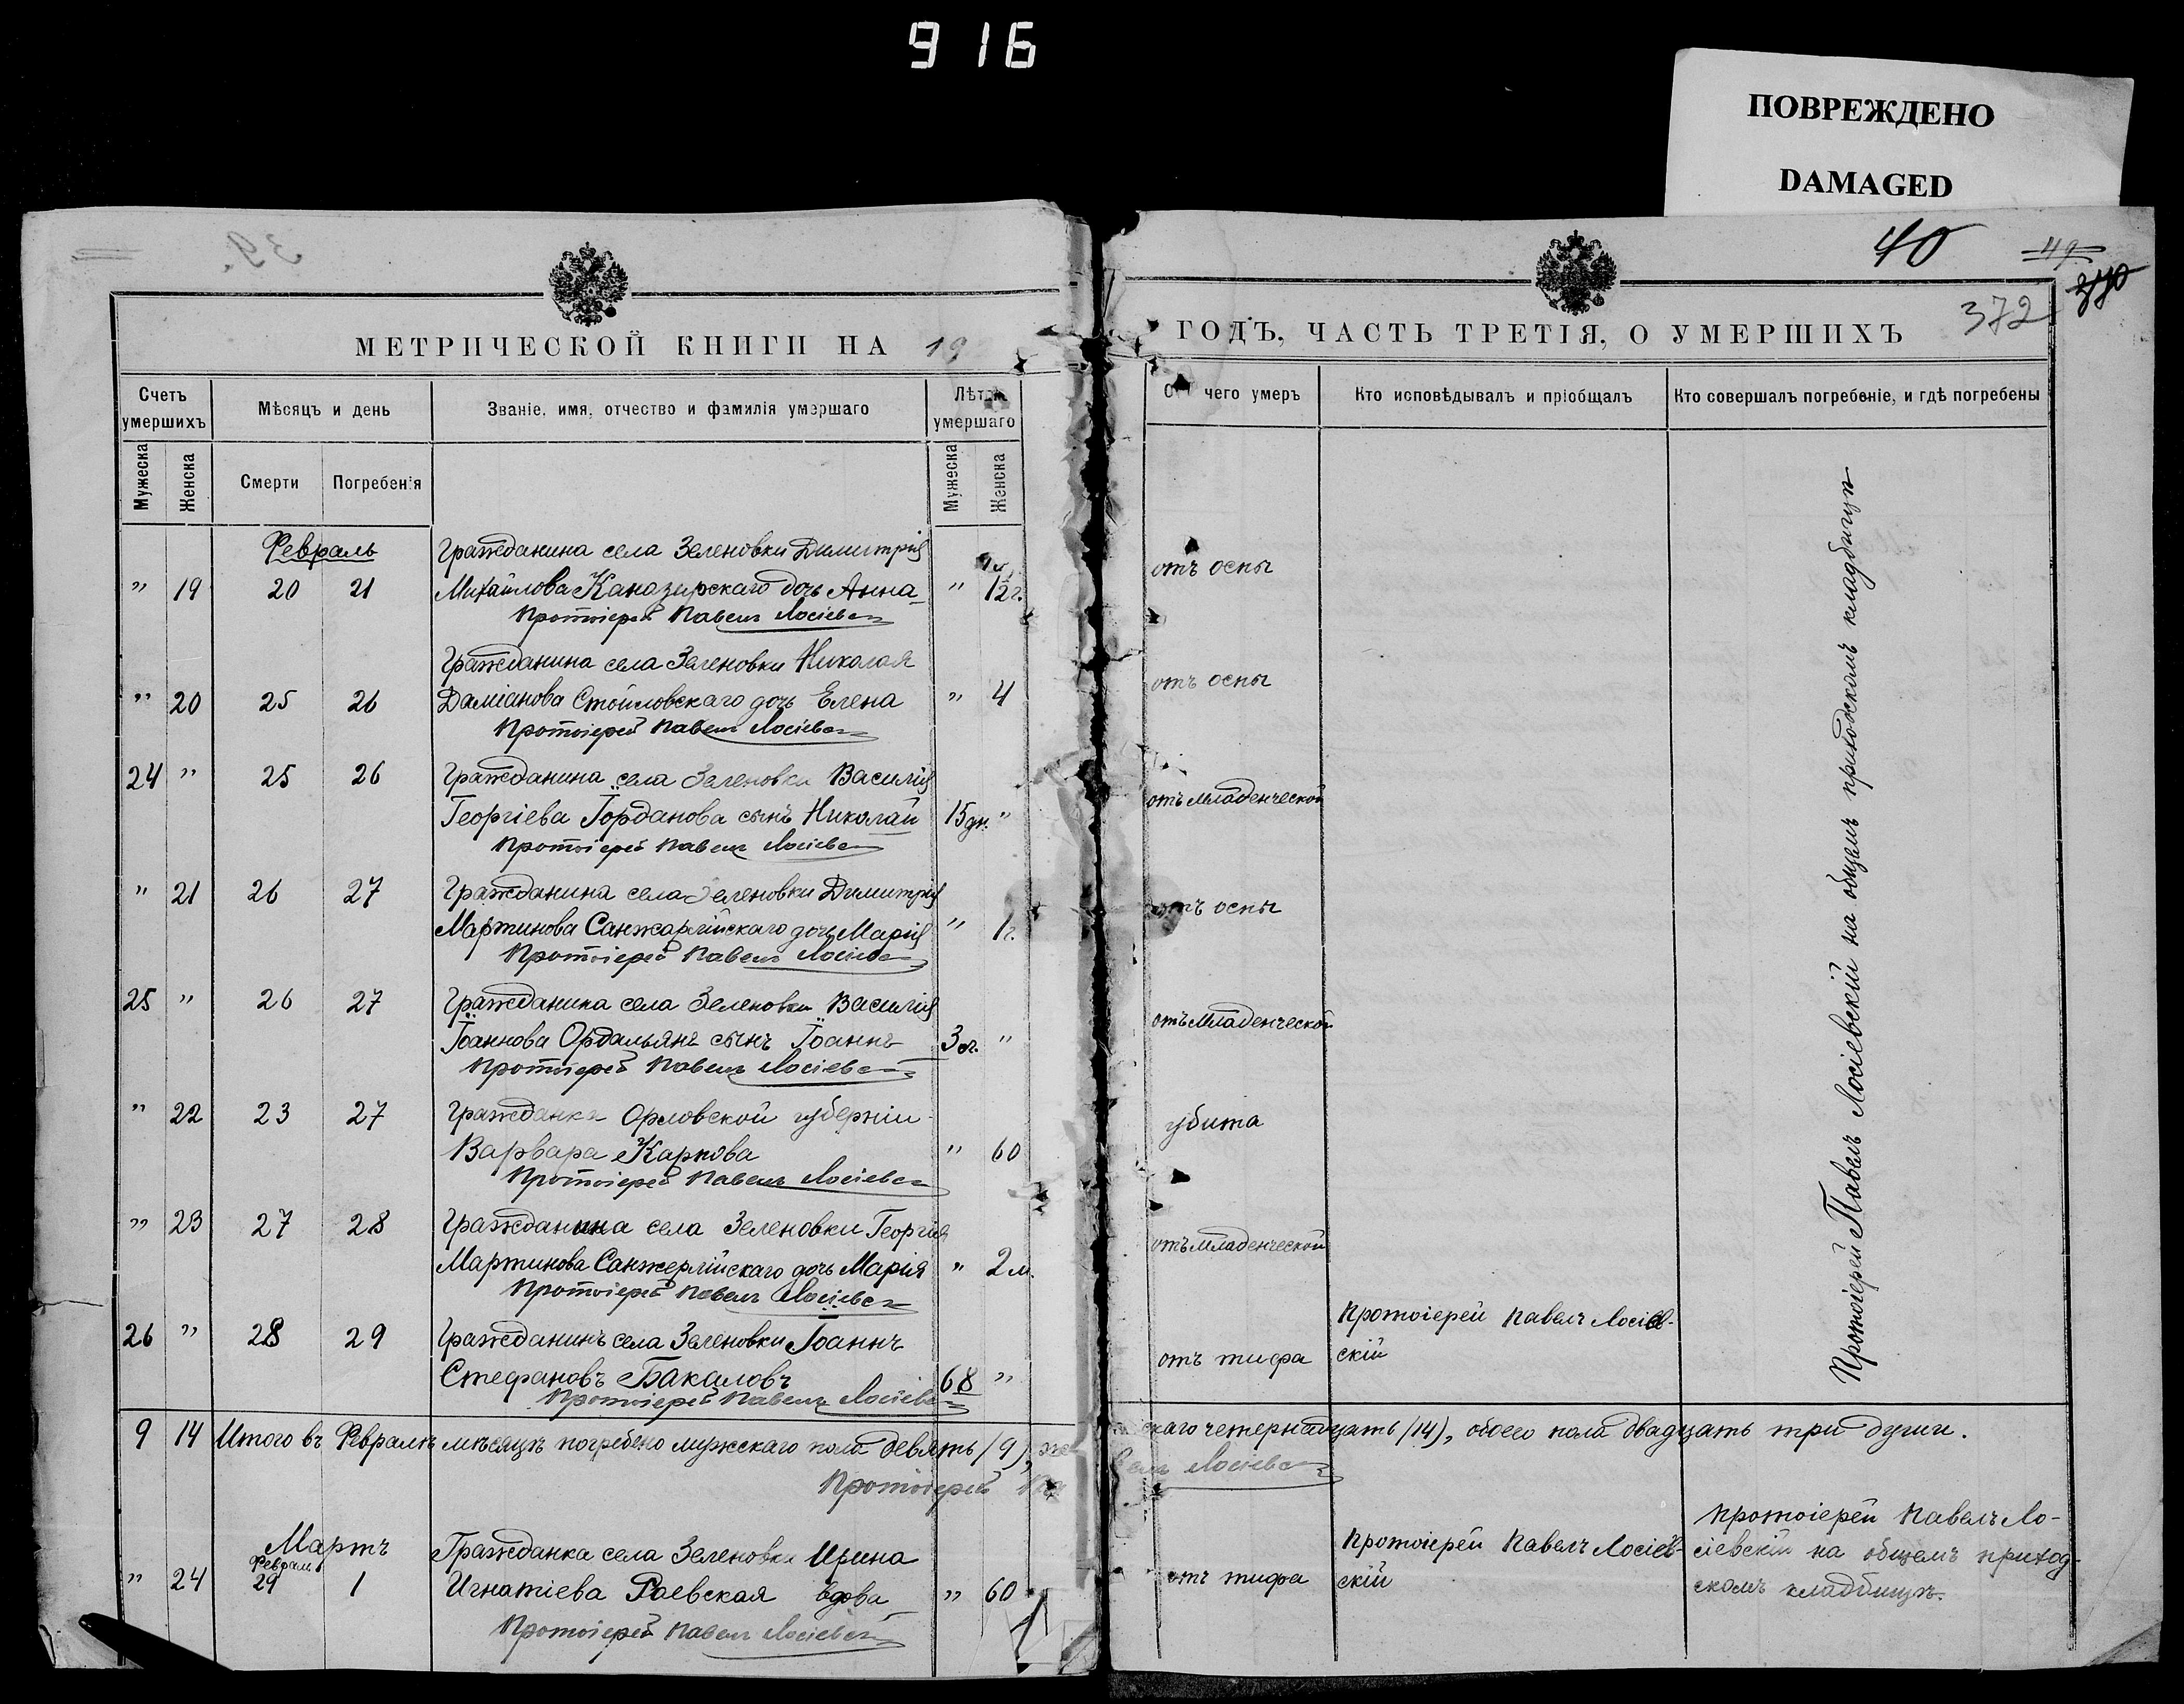 916
ПОВРЕЖДЕНО
DAMAGED
39.
40
49
340
372
МЕТРИЧЕСКОЙ КНИГИ НА 19
ГОДЪ, ЧАСТЬ ТРЕТІЯ, О УМЕРШИХЪ
Счетъ умершихъ
Мужеска
Женска
Мѣсяцъ и день
Смерти
Погребенія
Званіе, имя, отчество и фамилія умершаго
Лѣта умершаго
Мужеска
Женска
Отъ чего умеръ
Кто исповѣдывалъ и пріобщалъ
Кто совершалъ погребеніе, и гдѣ погребены
Февраль
Гражданина села Зеленовки Димитрія
" 19 20 21 Михайлова Каназирскаго дочь Анна " отъ оспы
Протоіерей Павелъ Лосіевскій
Гражданина села Зеленовки Николая
" 20 25 26 Даміанова Стоиловскаго дочь Елена " 4 отъ оспы
Протоіерей Павелъ Лосіевскій
24 " 25 26 Гражданина села Зеленовки Василія
Георгіева Іорданова сынъ Николай 15 дн. " отъ младенческой
Протоіерей Павелъ Лосіевскій
" 21 26 27 Гражданина села Зеленовки Димитрія
Мартинова Санжарлійскаго дочь Марія " 1 г. отъ оспы
Протоіерей Павелъ Лосіевскій
25 " 26 27 Гражданина села Зеленовки Василія
Іоаннова Ордальянъ сынъ Іоаннъ 3 " отъ младенческой
Протоіерей Павелъ Лосіевскій
" 22 23 27 Гражданка Орловской губерніи
Варвара Карпова " 60 убита
Протоіерей Павелъ Лосіевскій
" 23 27 28 Гражданина села Зеленовки Георгія
Мартинова Санжерлійскаго дочь Марія " 2 м. отъ младенческой
Протоіерей Павелъ Лосіевскій
26 " 28 29 Гражданинъ села Зеленовки Іоаннъ
Стефановъ Бакаловъ 68 " отъ тифа
Протоіерей Павелъ Лосіевскій
Протоіерей Павелъ Лосіев-
скій
Протоіерей Павелъ Лосіевскій на общемъ приходскомъ кладбищѣ
9 14 Итого въ Февралѣ мѣсяцѣ погребено мужскаго пола девять (9), женскаго четернадцать (14), обоего пола двадцать три души.
Протоіерей Павелъ Лосіевскій
Мартъ
Февраль
" 24 29 1 Гражданка села Зеленовки Ирина
Игнатіева Раевская вдова " 60 отъ тифа
Протоіерей Павелъ Лосіевскій
Протоіерей Павелъ Лосіев-
скій
Протоіерей Павелъ Ло-
сіевскій на общемъ приход-
скомъ кладбищѣ.